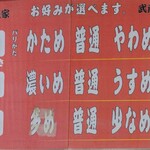 家 お好みが選べます 武
バリかため
かため 普通 やわめ
濃いめ 普通 うすめ
多め 普通 少なめ